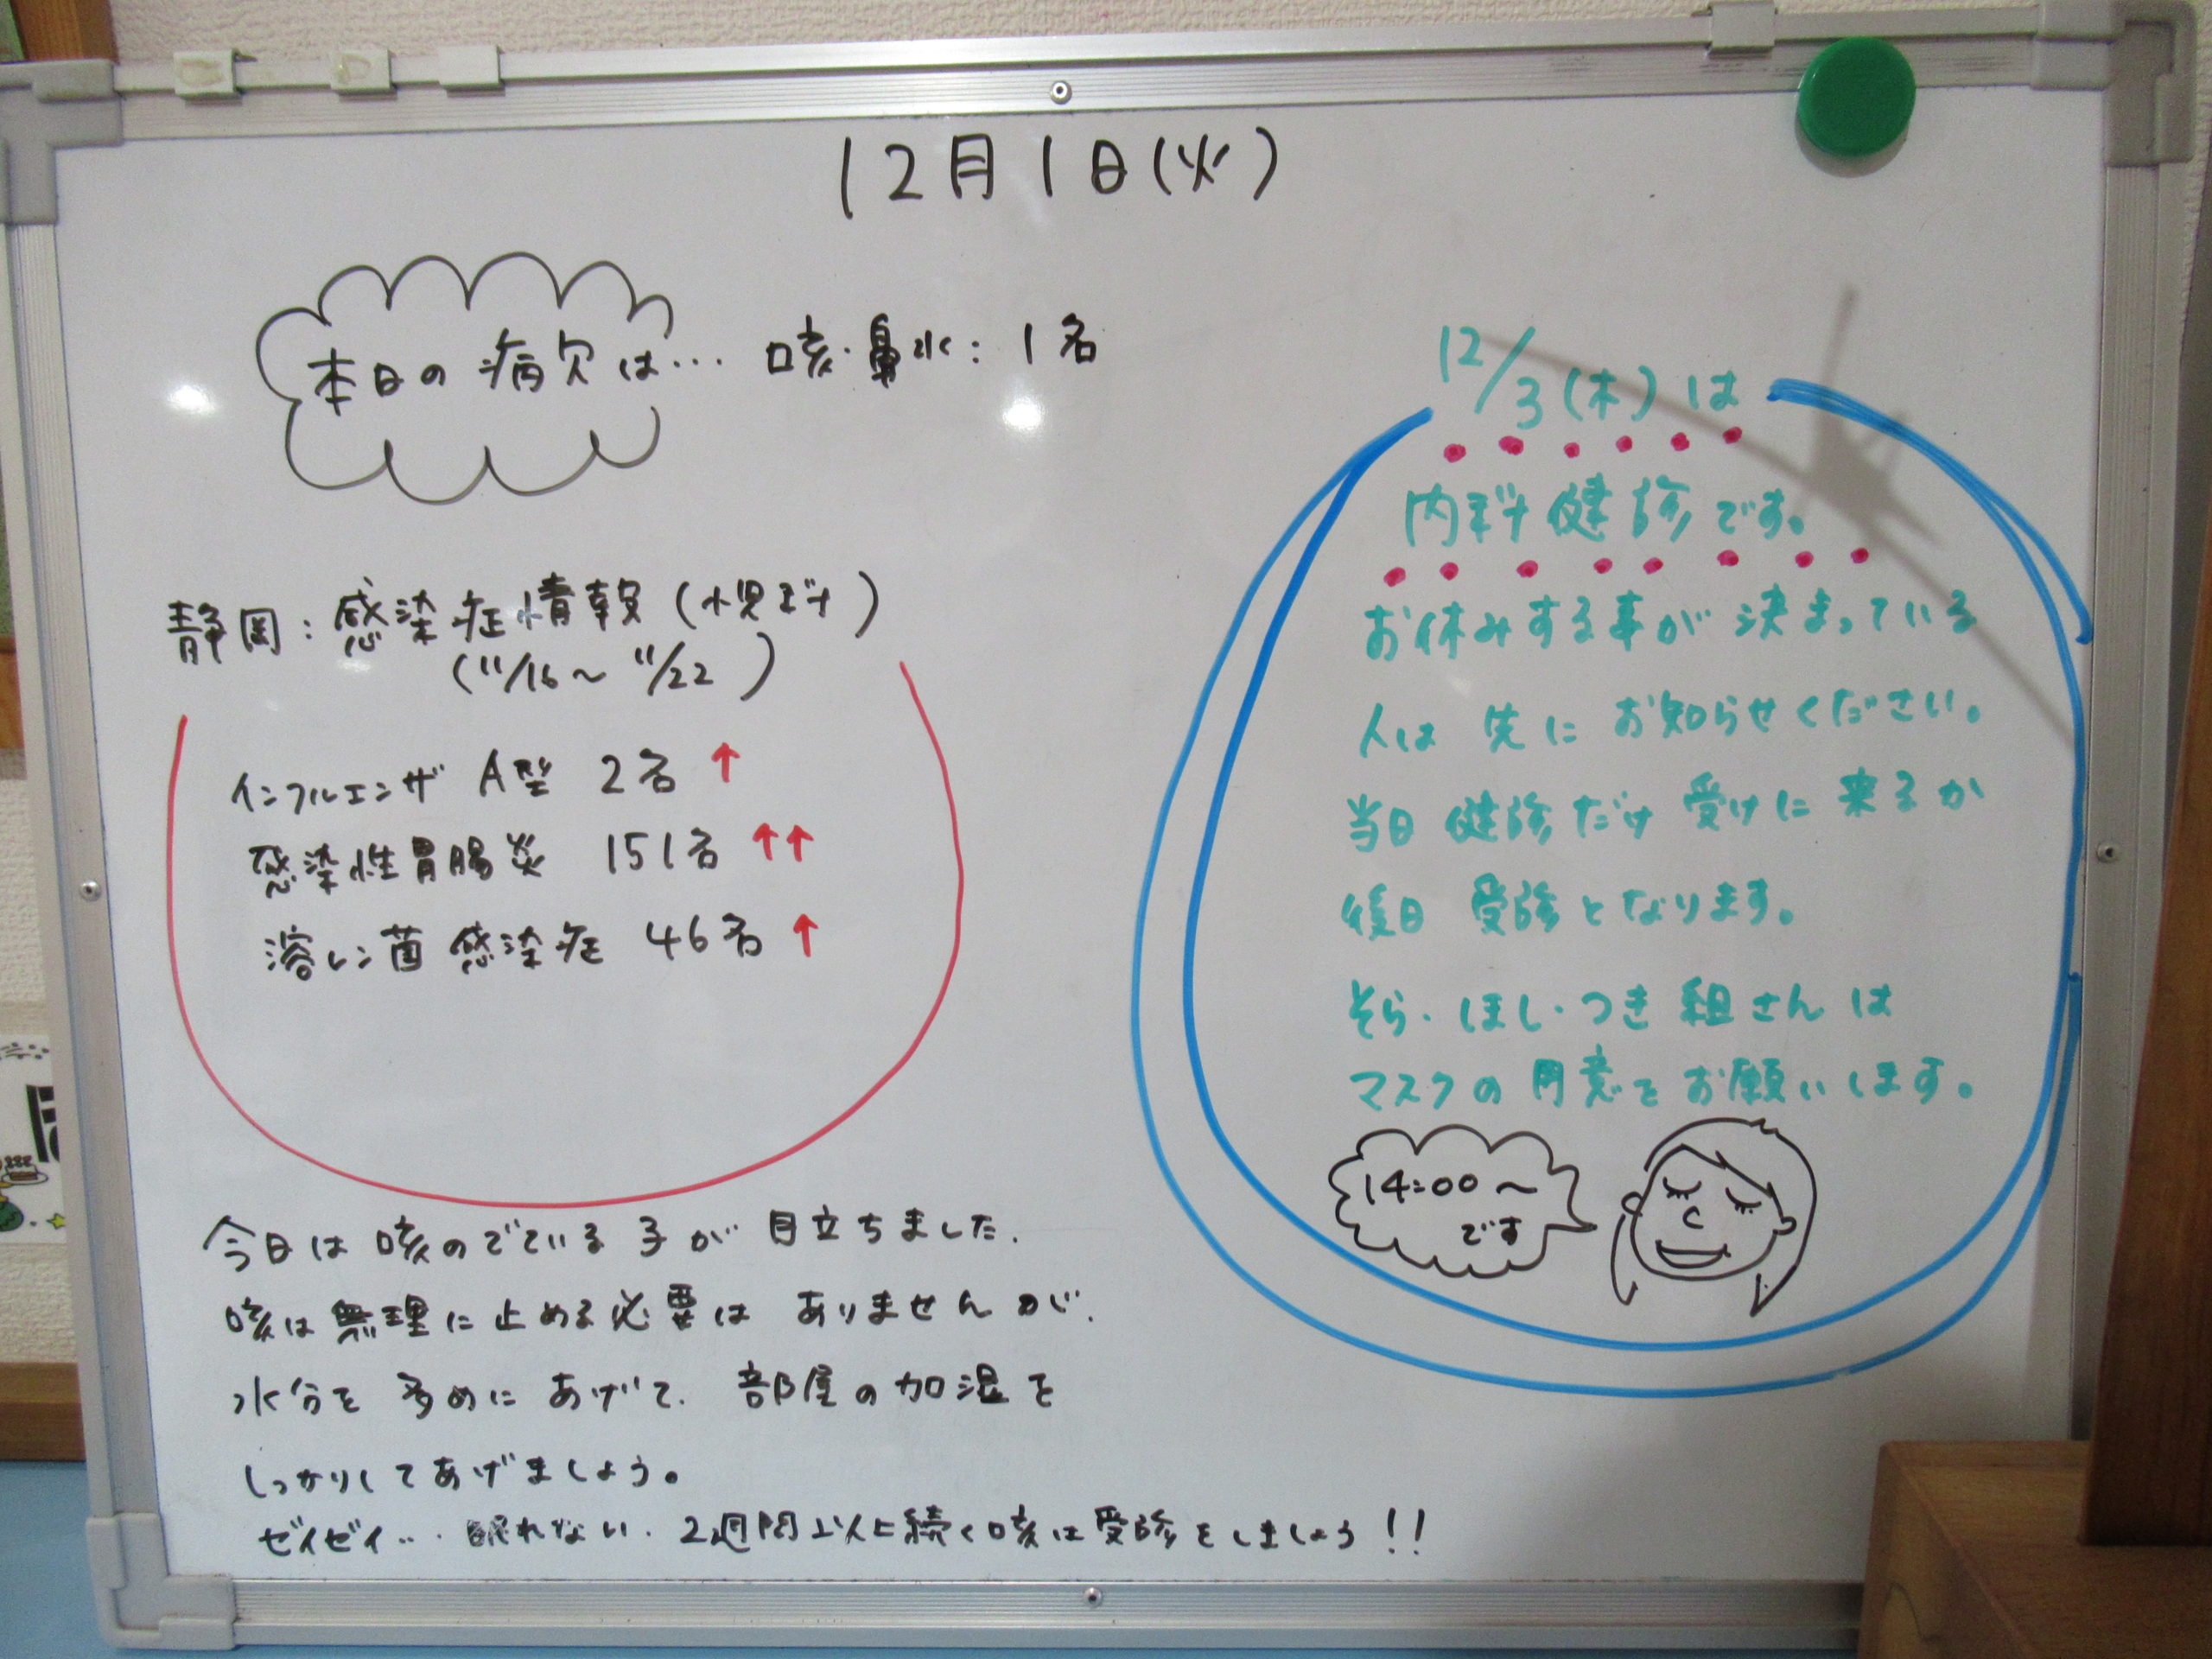 12月1日(火)
本日の病欠は… 咳・鼻水：1名
静岡：感染症情報(小児科)
(11/16〜11/22)
インフルエンザ A型 2名 ↑
感染性胃腸炎 151名 ↑↑
溶レン菌感染症 46名 ↑
今日は咳のでている子が目立ちました.
咳は無理に止める必要はありませんが.
水分を多めにあげて. 部屋の加湿を
しっかりしてあげましょう。
ゼイゼイ… 眠れない. 2週間以上続く咳は受診をしましょう!!
12/3(木)は
内科健診です。
お休みする事が決まっている
人は先にお知らせください。
当日健診だけ受けに来るか
後日受診となります。
そら・ほし・つき組さんは
マスクの用意をお願いします。
14:00〜
です